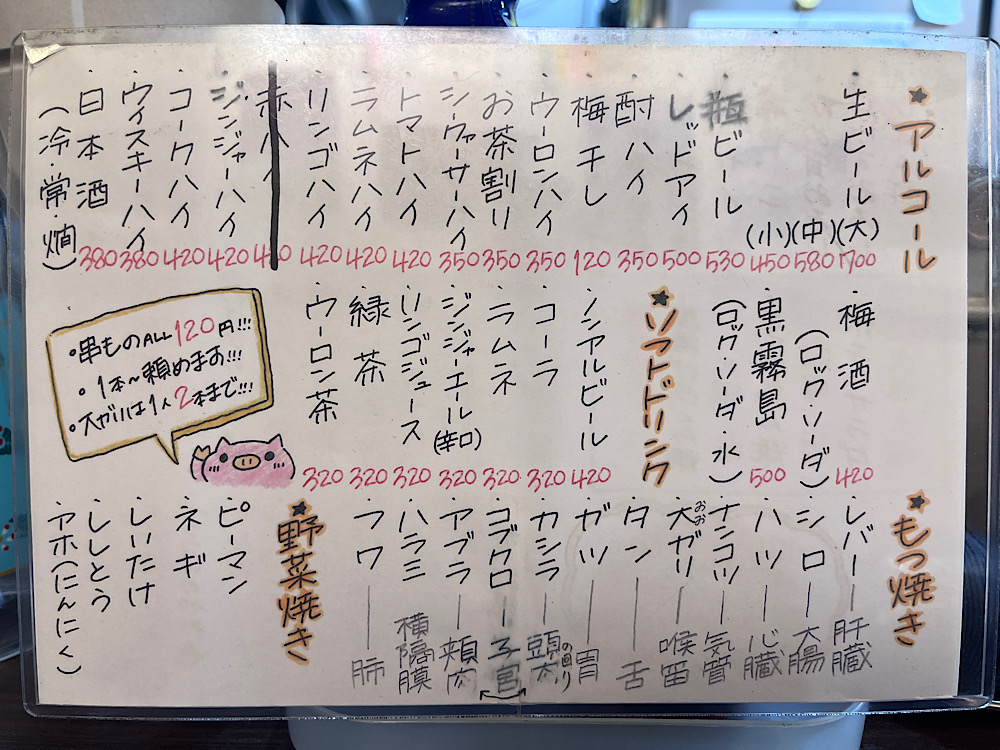 ★アルコール
・生ビール
(大)700
(中)580
(小)450
・瓶ビール 530
・レッドアイ 500
・酎ハイ 350
・梅干し 120
・ウーロンハイ 350
・お茶割り 350
・シークァーサーハイ 350
・トマトハイ 420
・ラムネハイ 420
・リンゴハイ 420
・赤ハイ
・ジンジャーハイ 420
・コークハイ 420
・ウイスキーハイ 380
・日本酒 380
(冷・常・燗)
・梅酒 420
(ロック・ソーダ)
・黒霧島 500
(ロック・ソーダ・水)
★ソフトドリンク
・ノンアルビール 420
・コーラ 320
・ラムネ 320
・ジンジャーエール(辛口) 320
・リンゴジュース 320
・緑茶 320
・ウーロン茶 320
・串ものALL120円!!!
・1本〜頼めます!!!
・大ガリは1人2本まで!!!
★もつ焼き
・レバー―肝臓
・シロ―大腸
・ハツ―心臓
・ナンコツ―気管
・大ガリ―喉笛
おお
・タン―舌
・ガツ―胃
・カシラ―頭肉
の回り
・コブクロ―子宮
・アブラ―頬肉
・ハラミ 横隔膜
・フワ―肺
★野菜焼き
・ピーマン
・ネギ
・しいたけ
・ししとう
・アホ(にんにく)